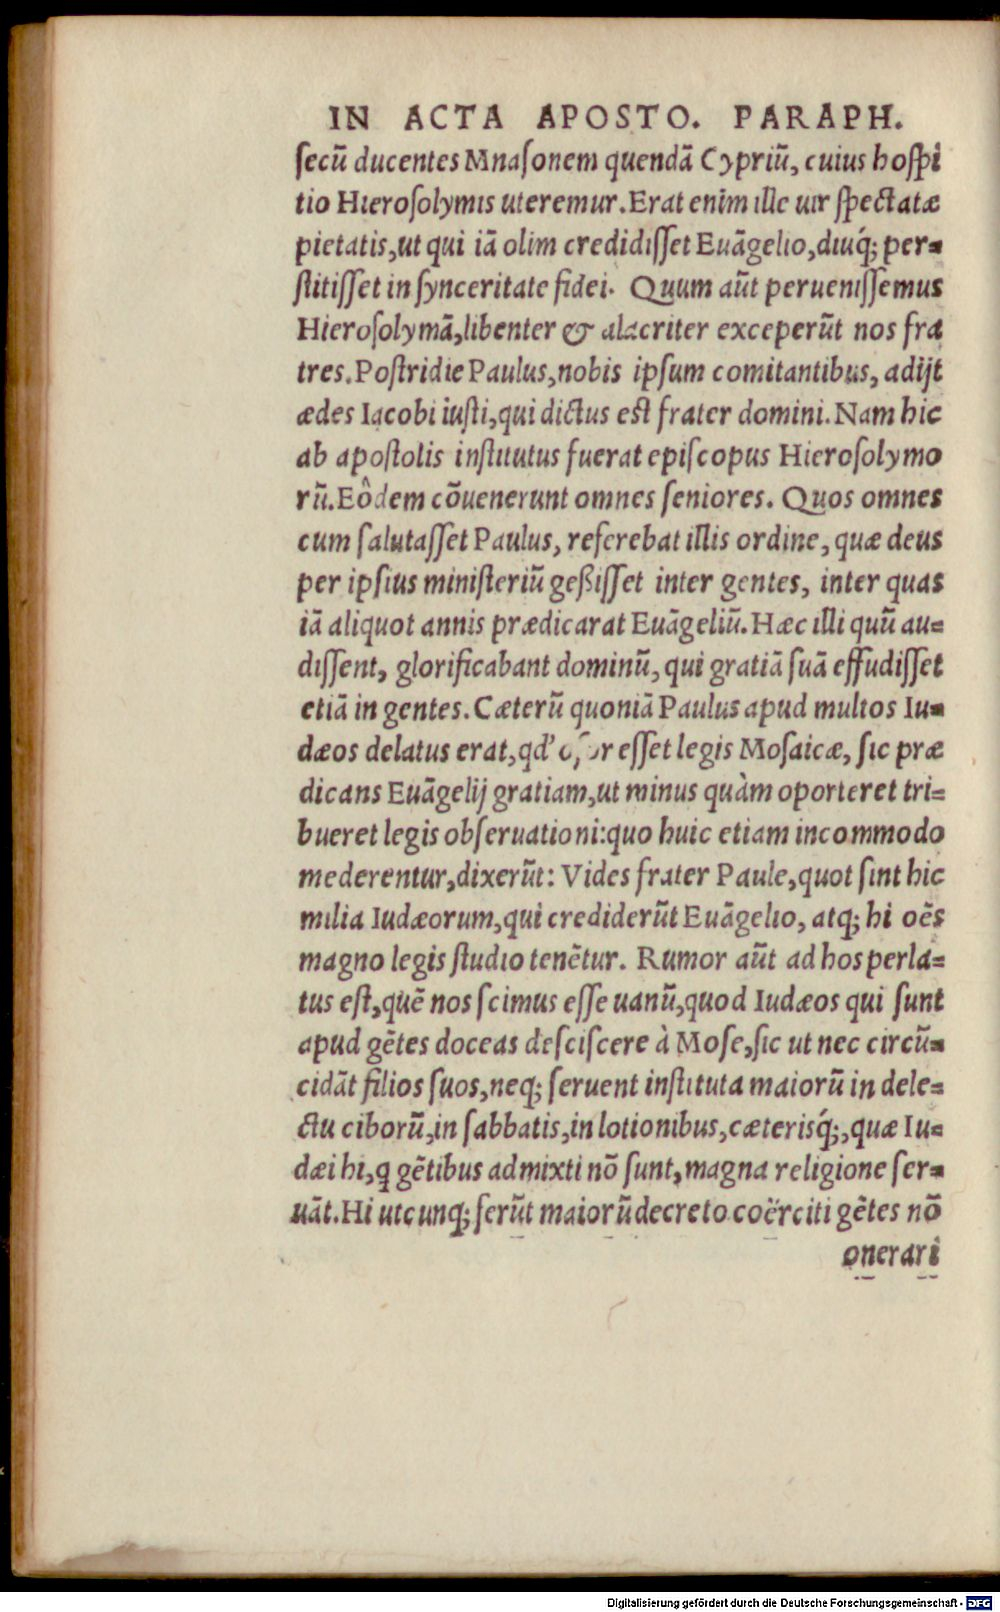 IN ACTA APOSTO. PARAPH.
ſecū ducentes Mnaſonem quendā Cypriū, cuius hoſpi
tio Hieroſolymis uteremur. Erat enim ille uir ſpectatæ
pietatis, ut qui iā olim credidiſſet Euāgelio, diuq́; per-
ſtitiſſet in ſynceritate fidei. Quum aūt perueniſſemus
Hieroſolymā, libenter & alacriter exceperūt nos fra
tres. Poſtridie Paulus, nobis ipſum comitantibus, adijt
ædes Iacobi iuſti, qui dictus eſt frater domini. Nam hic
ab apoſtolis inſtitutus fuerat epiſcopus Hieroſolymo
rū. Eôdem cōuenerunt omnes ſeniores. Quos omnes
cum ſalutaſſet Paulus, referebat illis ordine, quæ deus
per ipſius miniſteriū geßiſſet inter gentes, inter quas
iā aliquot annis prædicarat Euāgeliū. Hæc illi quū au-
diſſent, glorificabant dominū, qui gratiā ſuā effudiſſet
etiā in gentes. Cæterū quoniā Paulus apud multos Iu-
dæos delatus erat, qd' oſor eſſet legis Moſaicæ, ſic præ
dicans Euāgelij gratiam, ut minus quàm oporteret tri-
bueret legis obſeruationi: quo huic etiam incommodo
mederentur, dixerūt: Vides frater Paule, quot ſint hic
milia Iudæorum, qui crediderūt Euāgelio, atq; hi oēs
magno legis ſtudio tenētur. Rumor aūt ad hos perla-
tus eſt, quē nos ſcimus eſſe uanū, quod Iudæos qui ſunt
apud gētes doceas deſciſcere à Moſe, ſic ut nec circū-
cidāt filios ſuos, neq; ſeruent inſtituta maiorū in dele-
ctu ciborū, in ſabbatis, in lotionibus, cæterisq́;, quæ Iu-
dæi hi, q gētibus admixti nō ſunt, magna religione ſer-
uāt. Hi utcunq; ferūt maiorū decreto coërciti gētes nō
onerari
Digitalisierung gefördert durch die Deutsche Forschungsgemeinschaft - DFG